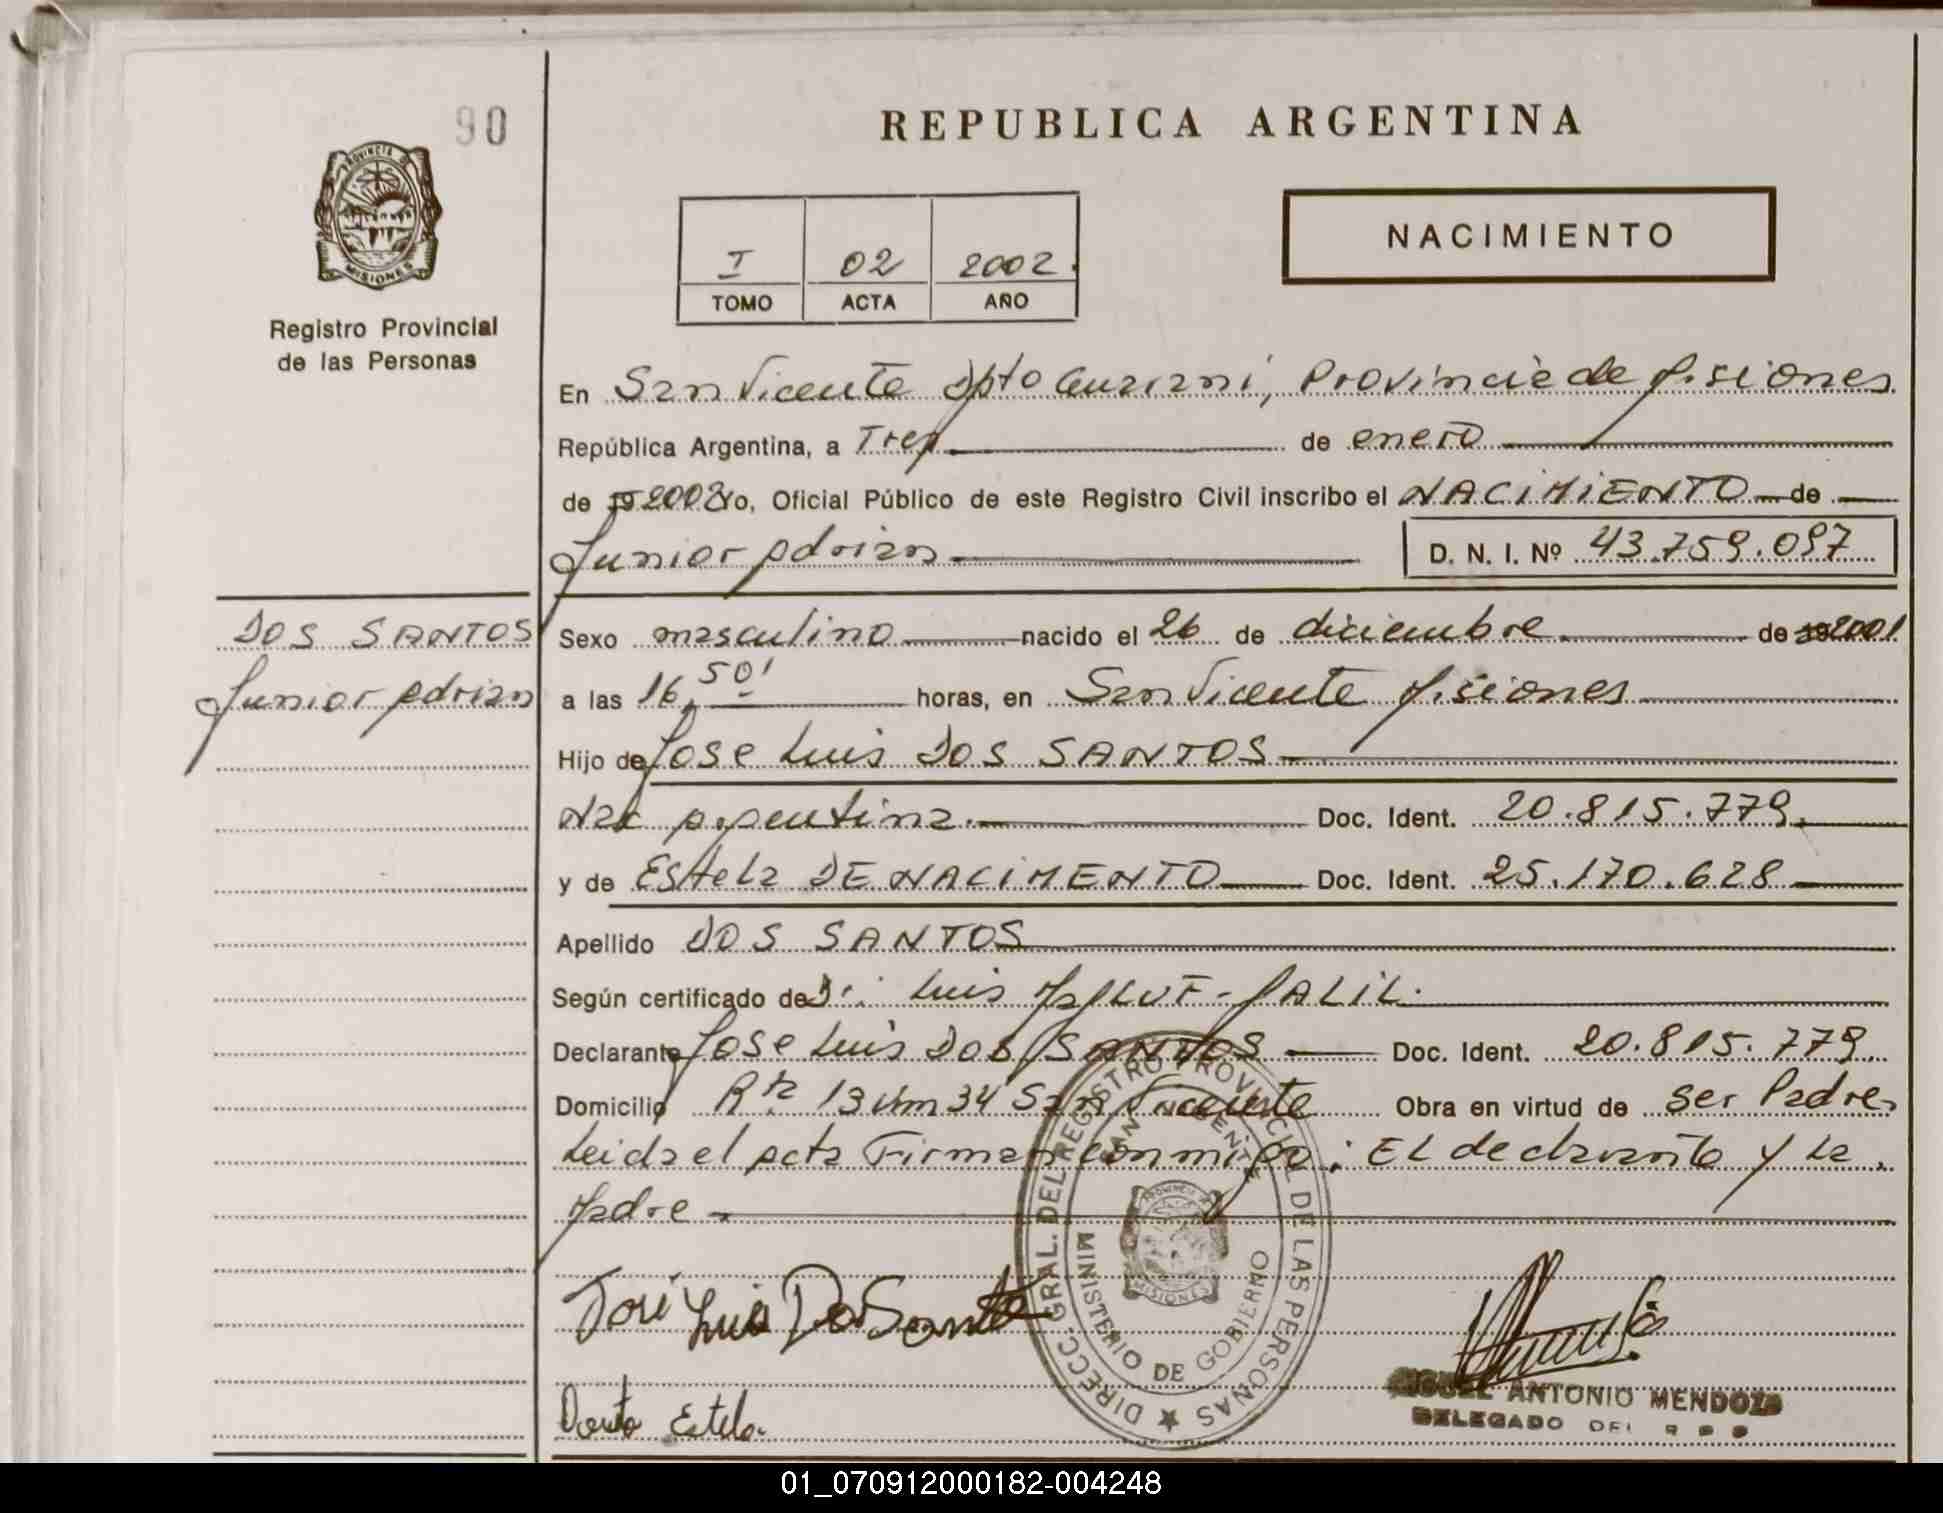 90
REPUBLICA ARGENTINA
PROVINCIA DE
MISIONES
Registro Provincial
de las Personas
NACIMIENTO
I 02 2002
TOMO ACTA AÑO
En San Vicente Dpto Guarani, Provincia de Misiones
República Argentina, a Tres de enero
de 19 2002 Yo, Oficial Público de este Registro Civil inscribo el NACIMIENTO de
Junior Adrian D. N. I. Nº 43.759.097
DOS SANTOS
Junior Adrian
Sexo masculino nacido el 26 de diciembre de 19 2001
a las 16,50' horas, en San Vicente Misiones
Hijo de Jose Luis DOS SANTOS
Nac Argentina. Doc. Ident. 20.815.779
y de Estela DE NACIMENTO Doc. Ident. 25.170.628
Apellido DOS SANTOS
Según certificado de Dr. Luis
Declarante Jose Luis Dos SANTOS Doc. Ident. 20.815.779
Domicilio Rta 13 Km 34 San Vicente Obra en virtud de ser Padre
Leida el acta Firman conmigo: El declarante y la
Madre
José Luis Do Santo
Estela
DIRECC. GRAL. DEL REGISTRO PROVINCIAL DE LAS PERSONAS
SAN VICENTE
PROVINCIA DE
MISIONES
MINISTERIO DE GOBIERNO
MIGUEL ANTONIO MENDOZA
DELEGADO DEL R P P
01_070912000182-004248